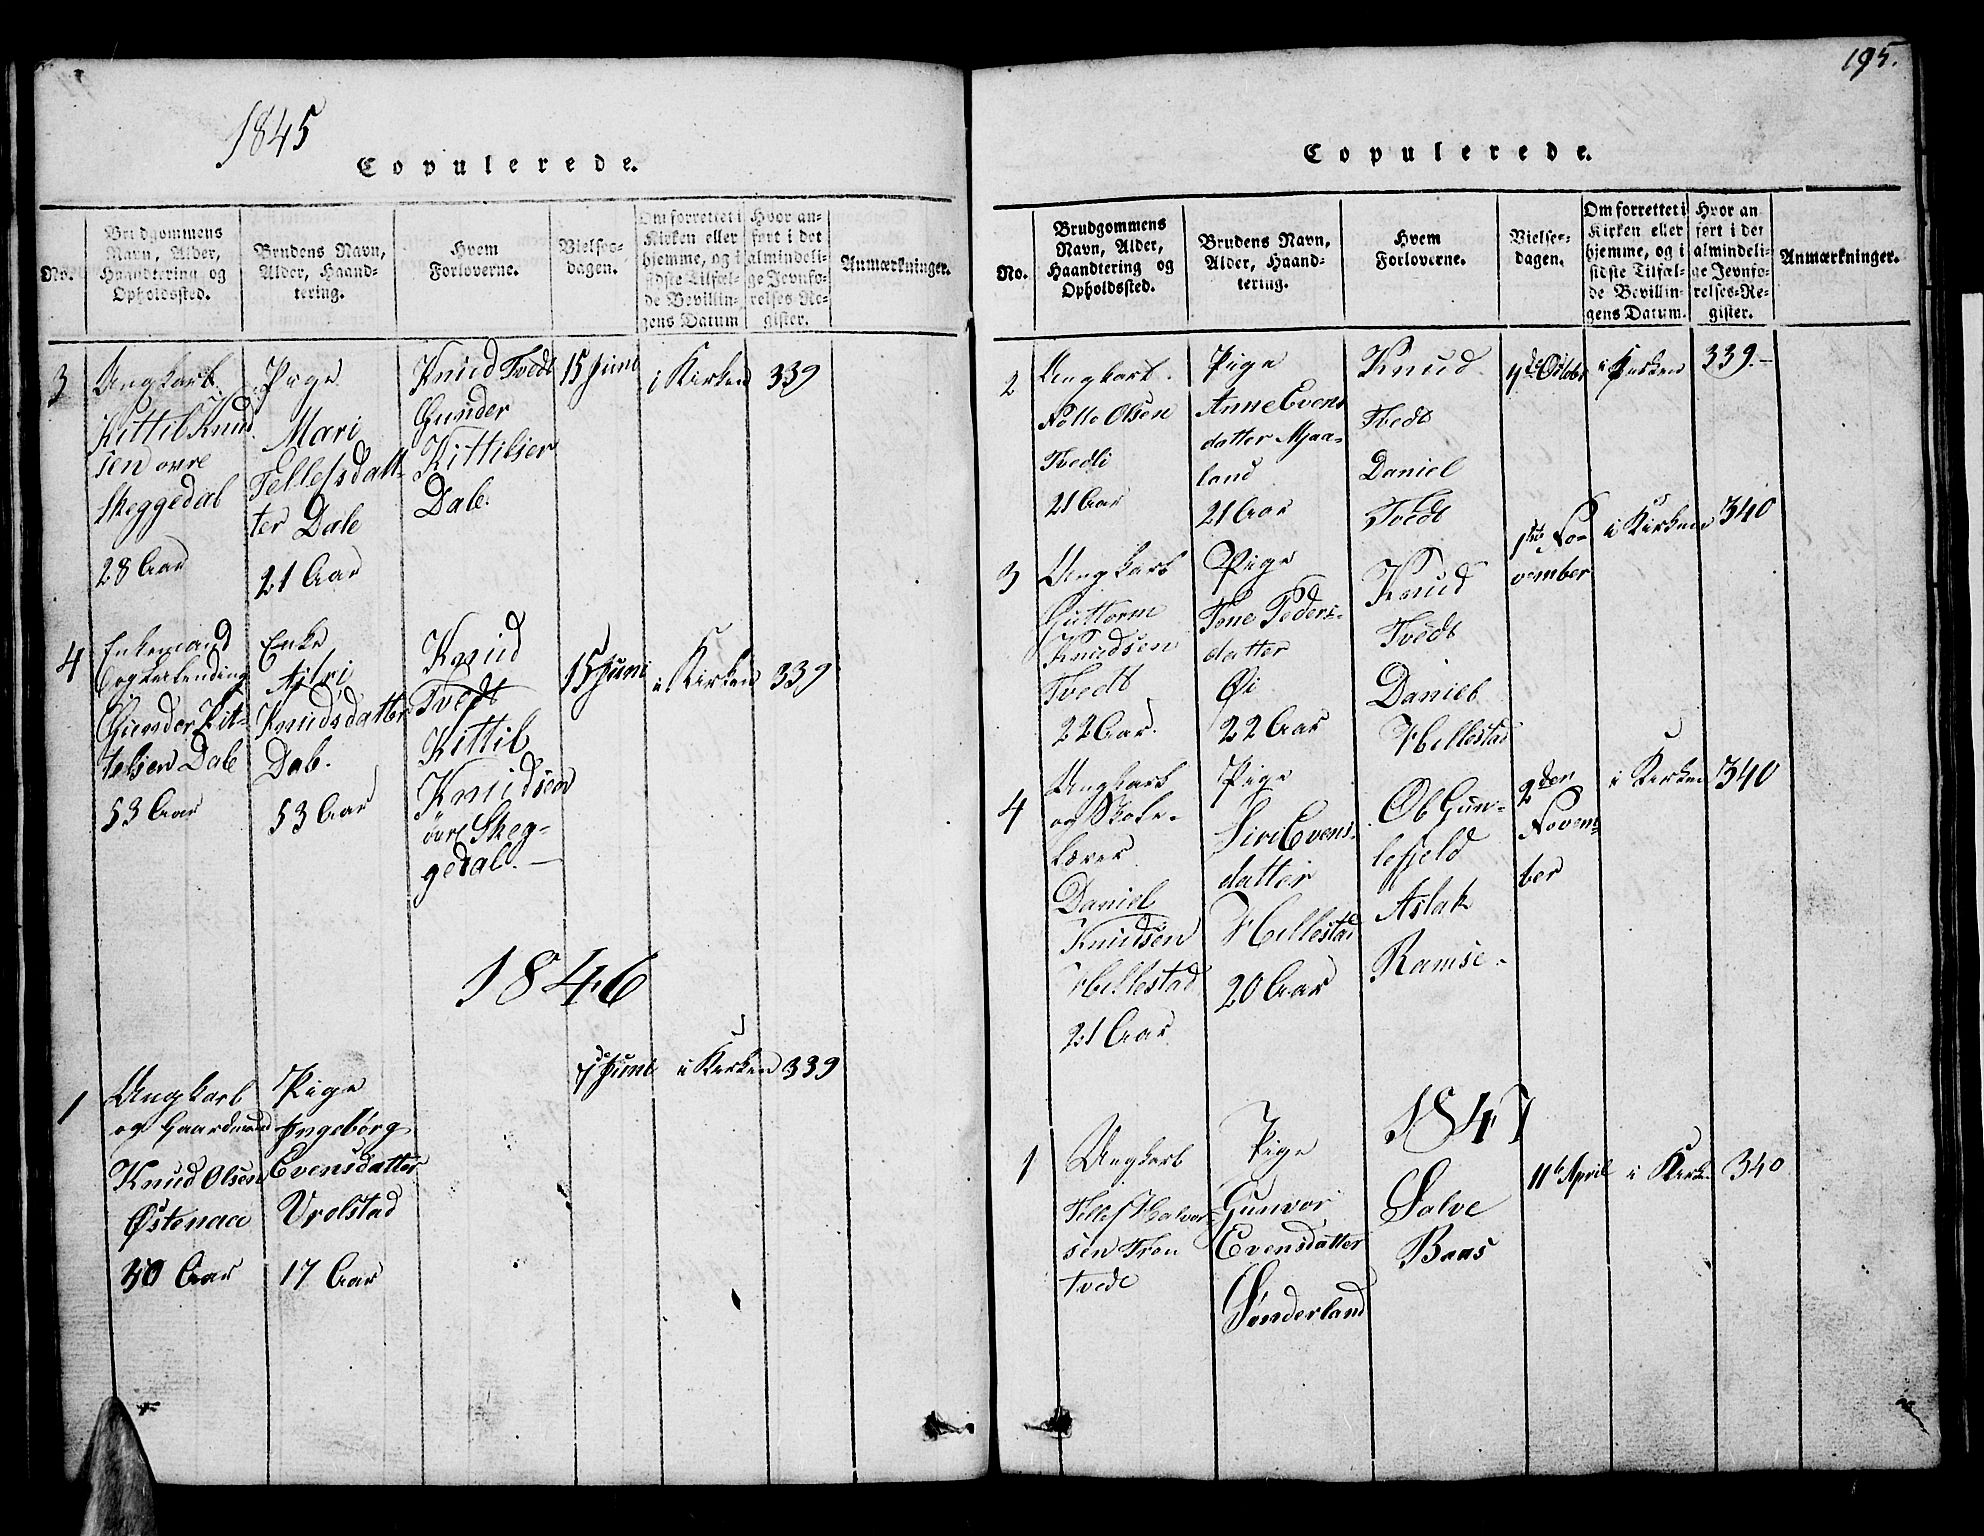 1845
Copulerede.
No.
Brudgommens
Navn, Alder,
Haandtering og
Opholdssted.
Brudens Navn,
Alder, Haand-
tering.
Hvem
Forloverne.
Vielses-
dagen.
Om forrettet i
Kirken eller
hjemme, og i
sidste Tilfæl-
de Bevillin-
gens Datum
Hvor an-
ført i det
almindeli-
ge Jevnfø-
relses-Re-
gister.
Anmærkninger.
3
Ungkarl
Kittil Knud
sen ovre
Skeggedal
28 Aar
Pige
Mari
Tellefsdatt-
ter Dale
21 Aar
Knud Tvedt
Gunder
Kittilsen
Dale.
15 Juni
i Kirken
339
4
Enkemand
Gunder Kit-
telsen Dale
53 Aar
Enke
Aslri
Knudsdatter
Dale.
53 Aar
Knud
Tvedt
Kittil
Knudsen
övre Skeg-
gedal.
15 Juni
i Kirken
339
1846
1
Ungkarl
og Gaardmand
Knud Olsen
40 Aar
Pige
Ingebörg
Evensdatter
Vrolstad
17 Aar
7de Juni
i Kirken
339
195.
Copulerede.
No.
Brudgommens
Navn, Alder,
Haandtering og
Opholdssted.
Brudens Navn,
Alder, Haand-
tering.
Hvem
Forloverne.
Vielses-
dagen.
Om forrettet i
Kirken eller
hjemme, og i
sidste Tilfæl-
de Bevillin-
gens Datum.
Hvor an
ført i det
almindeli-
ge Jevnfø-
relses-Re-
gister.
Anmærkninger.
2
Ungkarl.
Olsen
Tvedli
21 Aar
Pige
Anne Evens
datter Mjaa-
land
21 Aar
Knud
Tvedt
Daniel
Tvedt
4de October
i Kirken
339.-
3
Ungkarl
Guttorm
Knudsen
Tvedt
22 Aar.
Pige
Tone Peders-
datter
Øi
22 Aar
Knud
Tvedt
Daniel
Hellestad
1ste No-
vember
i Kirken
340
4
Ungkarl
og Skole-
lærer
Daniel
Knudsen
Hellestad
21 Aar
Pige
Siri Evens-
datter
Hellestad
20 Aar
Ole Gun-
lefjeld
Aslak
Ramse.
2den
Novem-
ber
i Kirken
340
1847
1
Ungkarl
Tellef Halvor-
sen Tron
tvede
Pige
Gunvor
Evensdatter
Sönderland
Salve
Baas
11te April
i Kirken
340